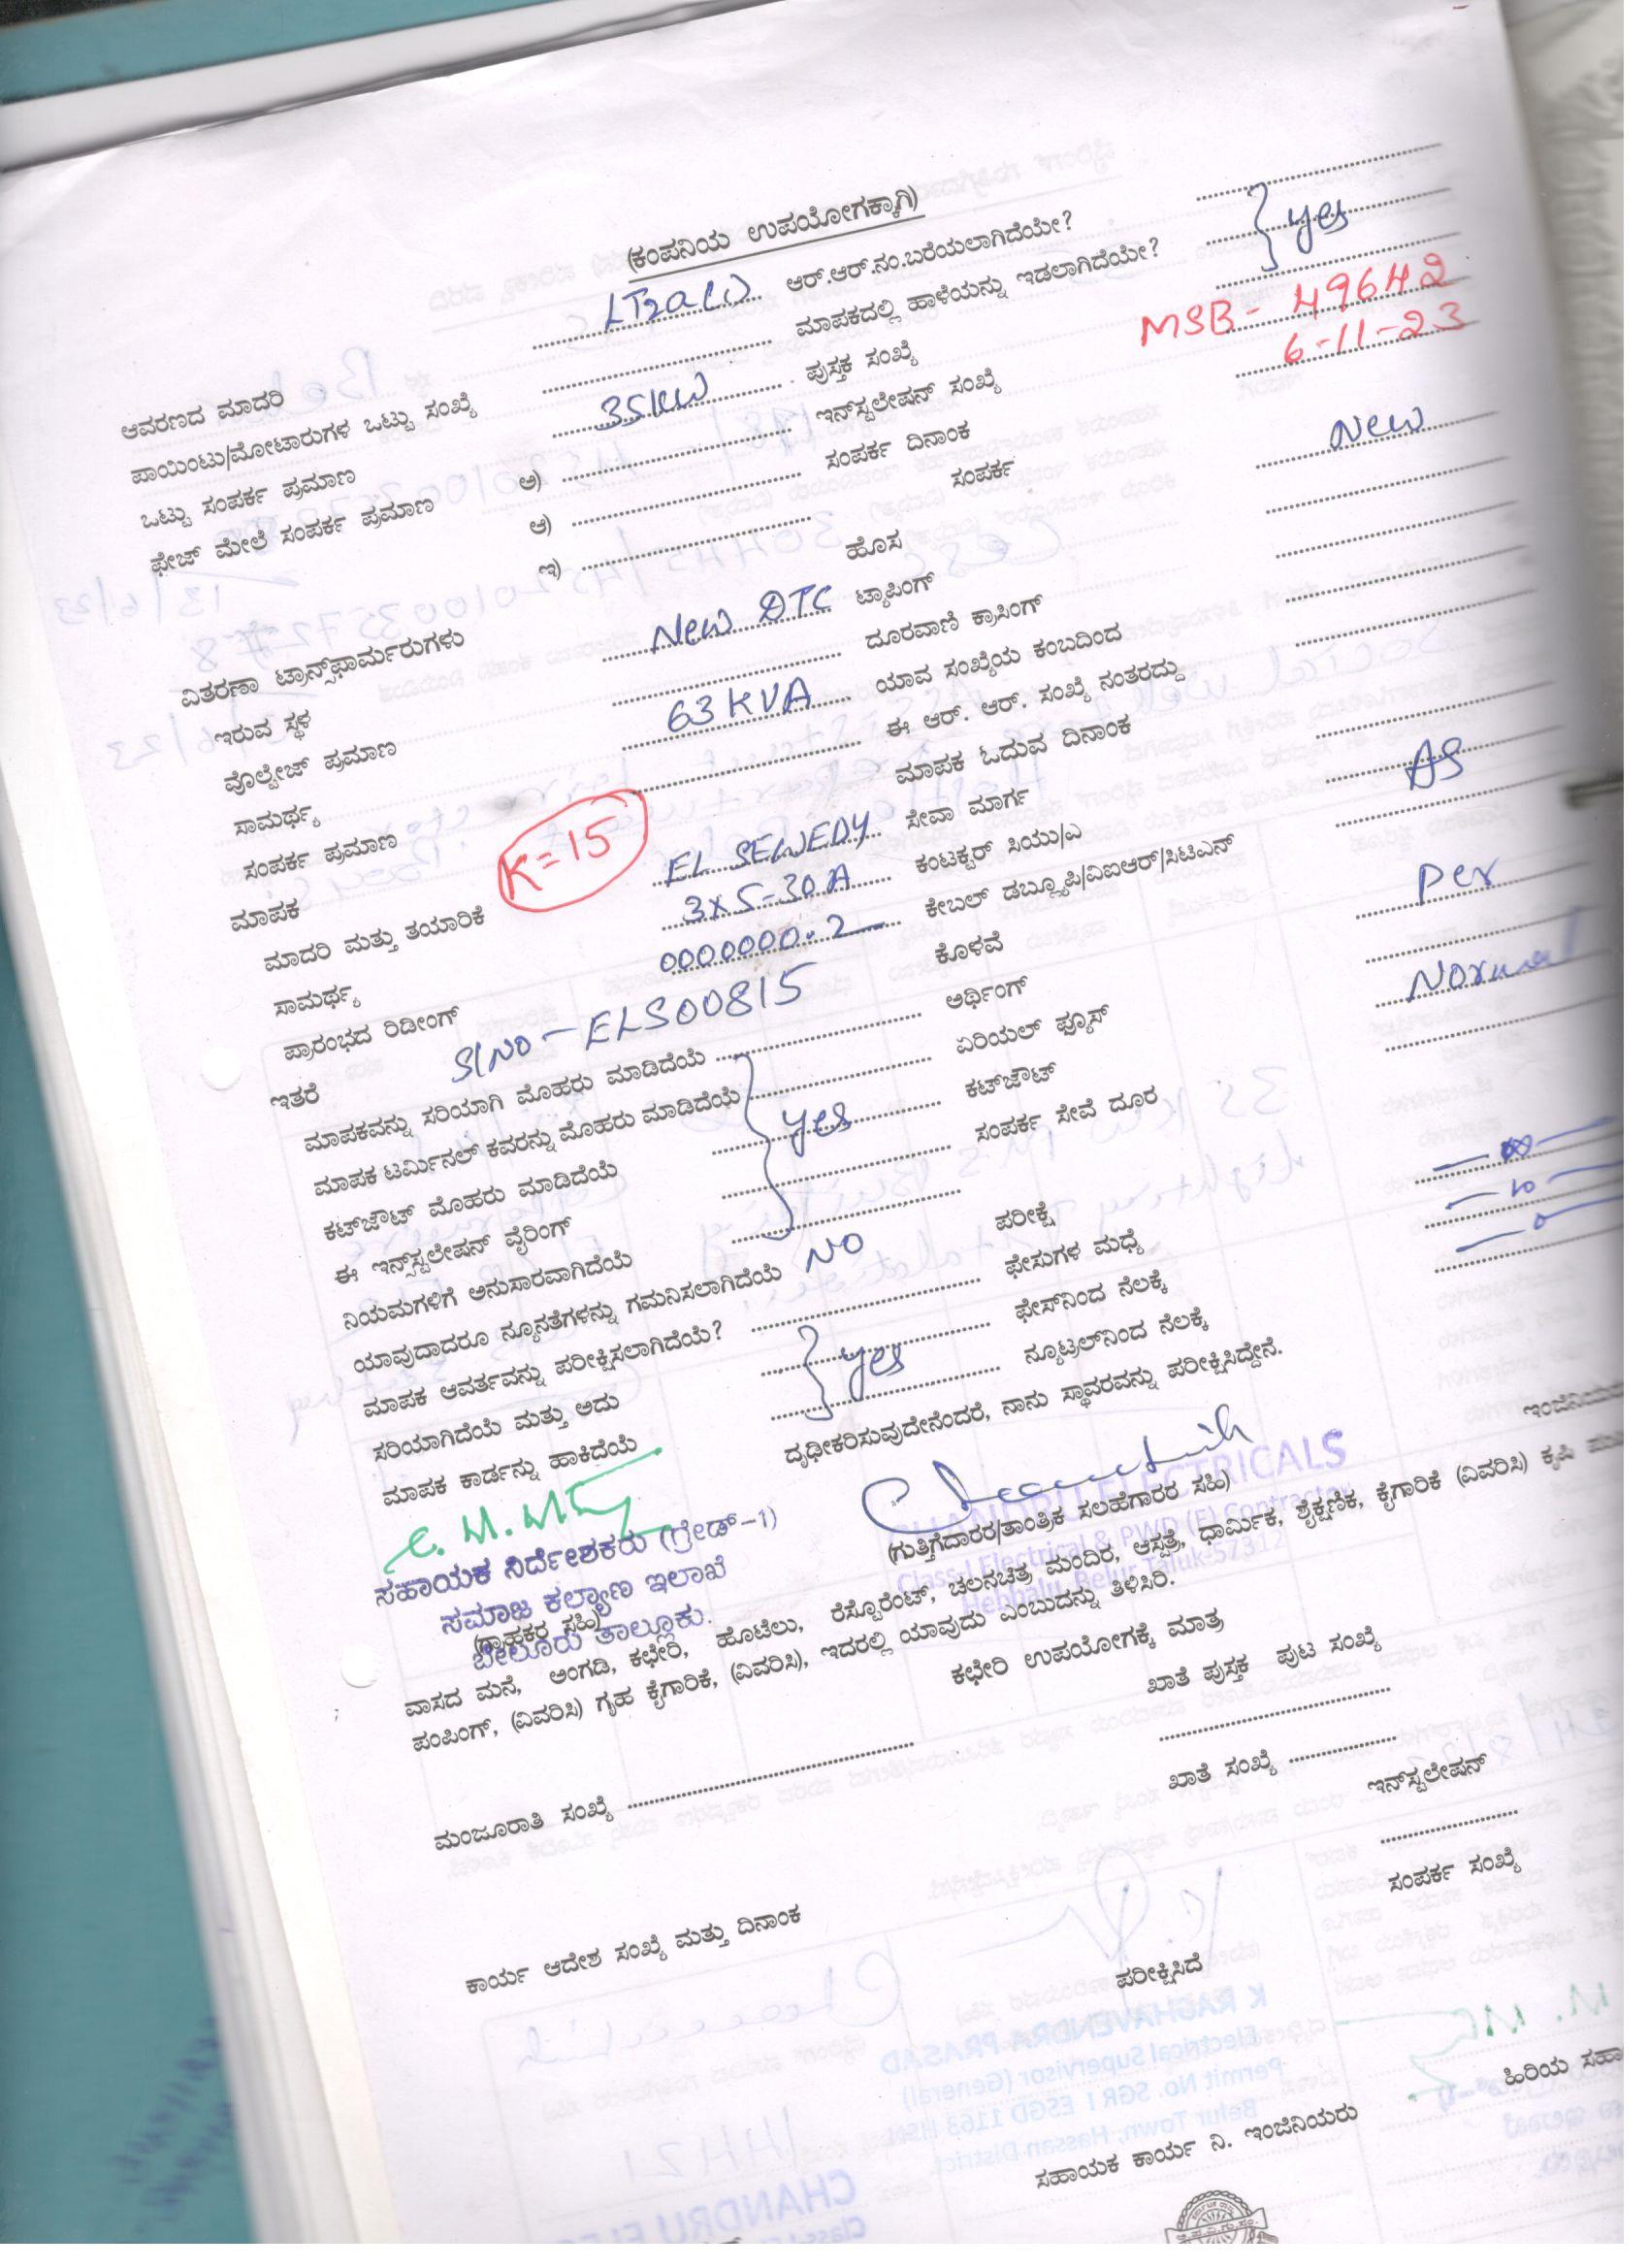 (ಕಂಪನಿಯ ಉಪಯೋಗಕ್ಕಾಗಿ)
ಆವರಣದ ಮಾದರಿ LT2a(ii) ಆರ್.ಆರ್.ನಂ.ಬರೆಯಲಾಗಿದೆಯೇ?
ಪಾಯಿಂಟು/ಮೋಟಾರುಗಳ ಒಟ್ಟು ಸಂಖ್ಯೆ ಮಾಪಕದಲ್ಲಿ ಹಾಳೆಯನ್ನು ಇಡಲಾಗಿದೆಯೇ? } yes
ಒಟ್ಟು ಸಂಪರ್ಕ ಪ್ರಮಾಣ 35KW ಪುಸ್ತಕ ಸಂಖ್ಯೆ
ಫೇಜ್ ಮೇಲೆ ಸಂಪರ್ಕ ಪ್ರಮಾಣ ಅ) ಇನ್‌ಸ್ಟಲೇಷನ್ ಸಂಖ್ಯೆ MSB - 49642
ಆ) ಸಂಪರ್ಕ ದಿನಾಂಕ 6-11-23
ಇ) ಸಂಪರ್ಕ
ಹೊಸ New
ವಿತರಣಾ ಟ್ರಾನ್ಸ್‌ಫಾರ್ಮರುಗಳು New DTC ಟ್ಯಾಪಿಂಗ್
ಇರುವ ಸ್ಥಳ ದೂರವಾಣಿ ಕ್ರಾಸಿಂಗ್
ವೊಲ್ಟೇಜ್ ಪ್ರಮಾಣ 63 KVA ಯಾವ ಸಂಖ್ಯೆಯ ಕಂಬದಿಂದ
ಸಾಮರ್ಥ್ಯ ಈ ಆರ್. ಆರ್. ಸಂಖ್ಯೆ ನಂತರದ್ದು
ಸಂಪರ್ಕ ಪ್ರಮಾಣ ಮಾಪಕ ಓದುವ ದಿನಾಂಕ
ಮಾಪಕ K=15 ಸೇವಾ ಮಾರ್ಗ AS
ಮಾದರಿ ಮತ್ತು ತಯಾರಿಕೆ EL SEWEDY ಕಂಟಕ್ಟರ್ ಸಿಯು/ಎ
ಸಾಮರ್ಥ್ಯ 3x5-30A ಕೇಬಲ್ ಡಬ್ಲ್ಯೂಪಿ/ವಿಐಆರ್/ಸಿಟಿಎನ್ Per
ಪ್ರಾರಂಭದ ರಿಡೀಂಗ್ 0000000.2 ಕೊಳವೆ
ಇತರೆ Sl No - ELS00815 ಅರ್ಥಿಂಗ್ Normal
ಮಾಪಕವನ್ನು ಸರಿಯಾಗಿ ಮೊಹರು ಮಾಡಿದೆಯೆ ಏರಿಯಲ್ ಫ್ಯೂಸ್
ಮಾಪಕ ಟರ್ಮಿನಲ್ ಕವರನ್ನು ಮೊಹರು ಮಾಡಿದೆಯೆ } yes ಕಟ್‌ಔಟ್
ಕಟ್‌ಔಟ್ ಮೊಹರು ಮಾಡಿದೆಯೆ ಸಂಪರ್ಕ ಸೇವೆ ದೂರ
ಈ ಇನ್ಸ್‌ಸ್ಟಲೇಷನ್ ವೈರಿಂಗ್
ನಿಯಮಗಳಿಗೆ ಅನುಸಾರವಾಗಿದೆಯೆ ಪರೀಕ್ಷೆ
ಯಾವುದಾದರೂ ನ್ಯೂನತೆಗಳನ್ನು ಗಮನಿಸಲಾಗಿದೆಯೆ NO ಫೇಸುಗಳ ಮಧ್ಯೆ
ಮಾಪಕ ಆವರ್ತವನ್ನು ಪರೀಕ್ಷಿಸಲಾಗಿದೆಯೆ? ಫೇಸ್‌ನಿಂದ ನೆಲಕ್ಕೆ
ಸರಿಯಾಗಿದೆಯೆ ಮತ್ತು ಅದು } yes ನ್ಯೂಟ್ರಲ್‌ನಿಂದ ನೆಲಕ್ಕೆ
ಮಾಪಕ ಕಾರ್ಡನ್ನು ಹಾಕಿದೆಯೆ ದೃಢೀಕರಿಸುವುದೇನೆಂದರೆ, ನಾನು ಸ್ಥಾವರವನ್ನು ಪರೀಕ್ಷಿಸಿದ್ದೇನೆ.
CHANDRU ELECTRICALS
(ಗುತ್ತಿಗೆದಾರರ/ತಾಂತ್ರಿಕ ಸಲಹೆಗಾರರ ಸಹಿ)
Class-I Electrical & PWD (E) Contractor
Hebbalu, Belur Taluk-57312
ಸಹಾಯಕ ನಿರ್ದೇಶಕರು (ಗ್ರೇಡ್-1)
ಸಮಾಜ ಕಲ್ಯಾಣ ಇಲಾಖೆ
(ಗ್ರಾಹಕರ ಸಹಿ)
ಬೇಲೂರು ತಾಲ್ಲೂಕು.
ವಾಸದ ಮನೆ, ಅಂಗಡಿ, ಕಛೇರಿ, ಹೊಟೆಲು, ರೆಸ್ಟೋರೆಂಟ್, ಚಲನಚಿತ್ರ ಮಂದಿರ, ಆಸ್ಪತ್ರೆ, ಧಾರ್ಮಿಕ, ಶೈಕ್ಷಣಿಕ, ಕೈಗಾರಿಕೆ (ವಿವರಿಸಿ) ಕೃಷಿ
ಪಂಪಿಂಗ್, (ವಿವರಿಸಿ) ಗೃಹ ಕೈಗಾರಿಕೆ, (ವಿವರಿಸಿ), ಇದರಲ್ಲಿ ಯಾವುದು ಎಂಬುದನ್ನು ತಿಳಿಸಿರಿ.
ಕಛೇರಿ ಉಪಯೋಗಕ್ಕೆ ಮಾತ್ರ
ಖಾತೆ ಪುಸ್ತಕ ಪುಟ ಸಂಖ್ಯೆ
ಮಂಜೂರಾತಿ ಸಂಖ್ಯೆ
ಖಾತೆ ಸಂಖ್ಯೆ
ಇನ್‌ಸ್ಟಲೇಷನ್
ಸಂಪರ್ಕ ಸಂಖ್ಯೆ
ಕಾರ್ಯ ಆದೇಶ ಸಂಖ್ಯೆ ಮತ್ತು ದಿನಾಂಕ
ಪರೀಕ್ಷಿಸಿದೆ
ಸಹಾಯಕ ಕಾರ್ಯ ನಿ. ಇಂಜಿನಿಯರು ಹಿರಿಯ